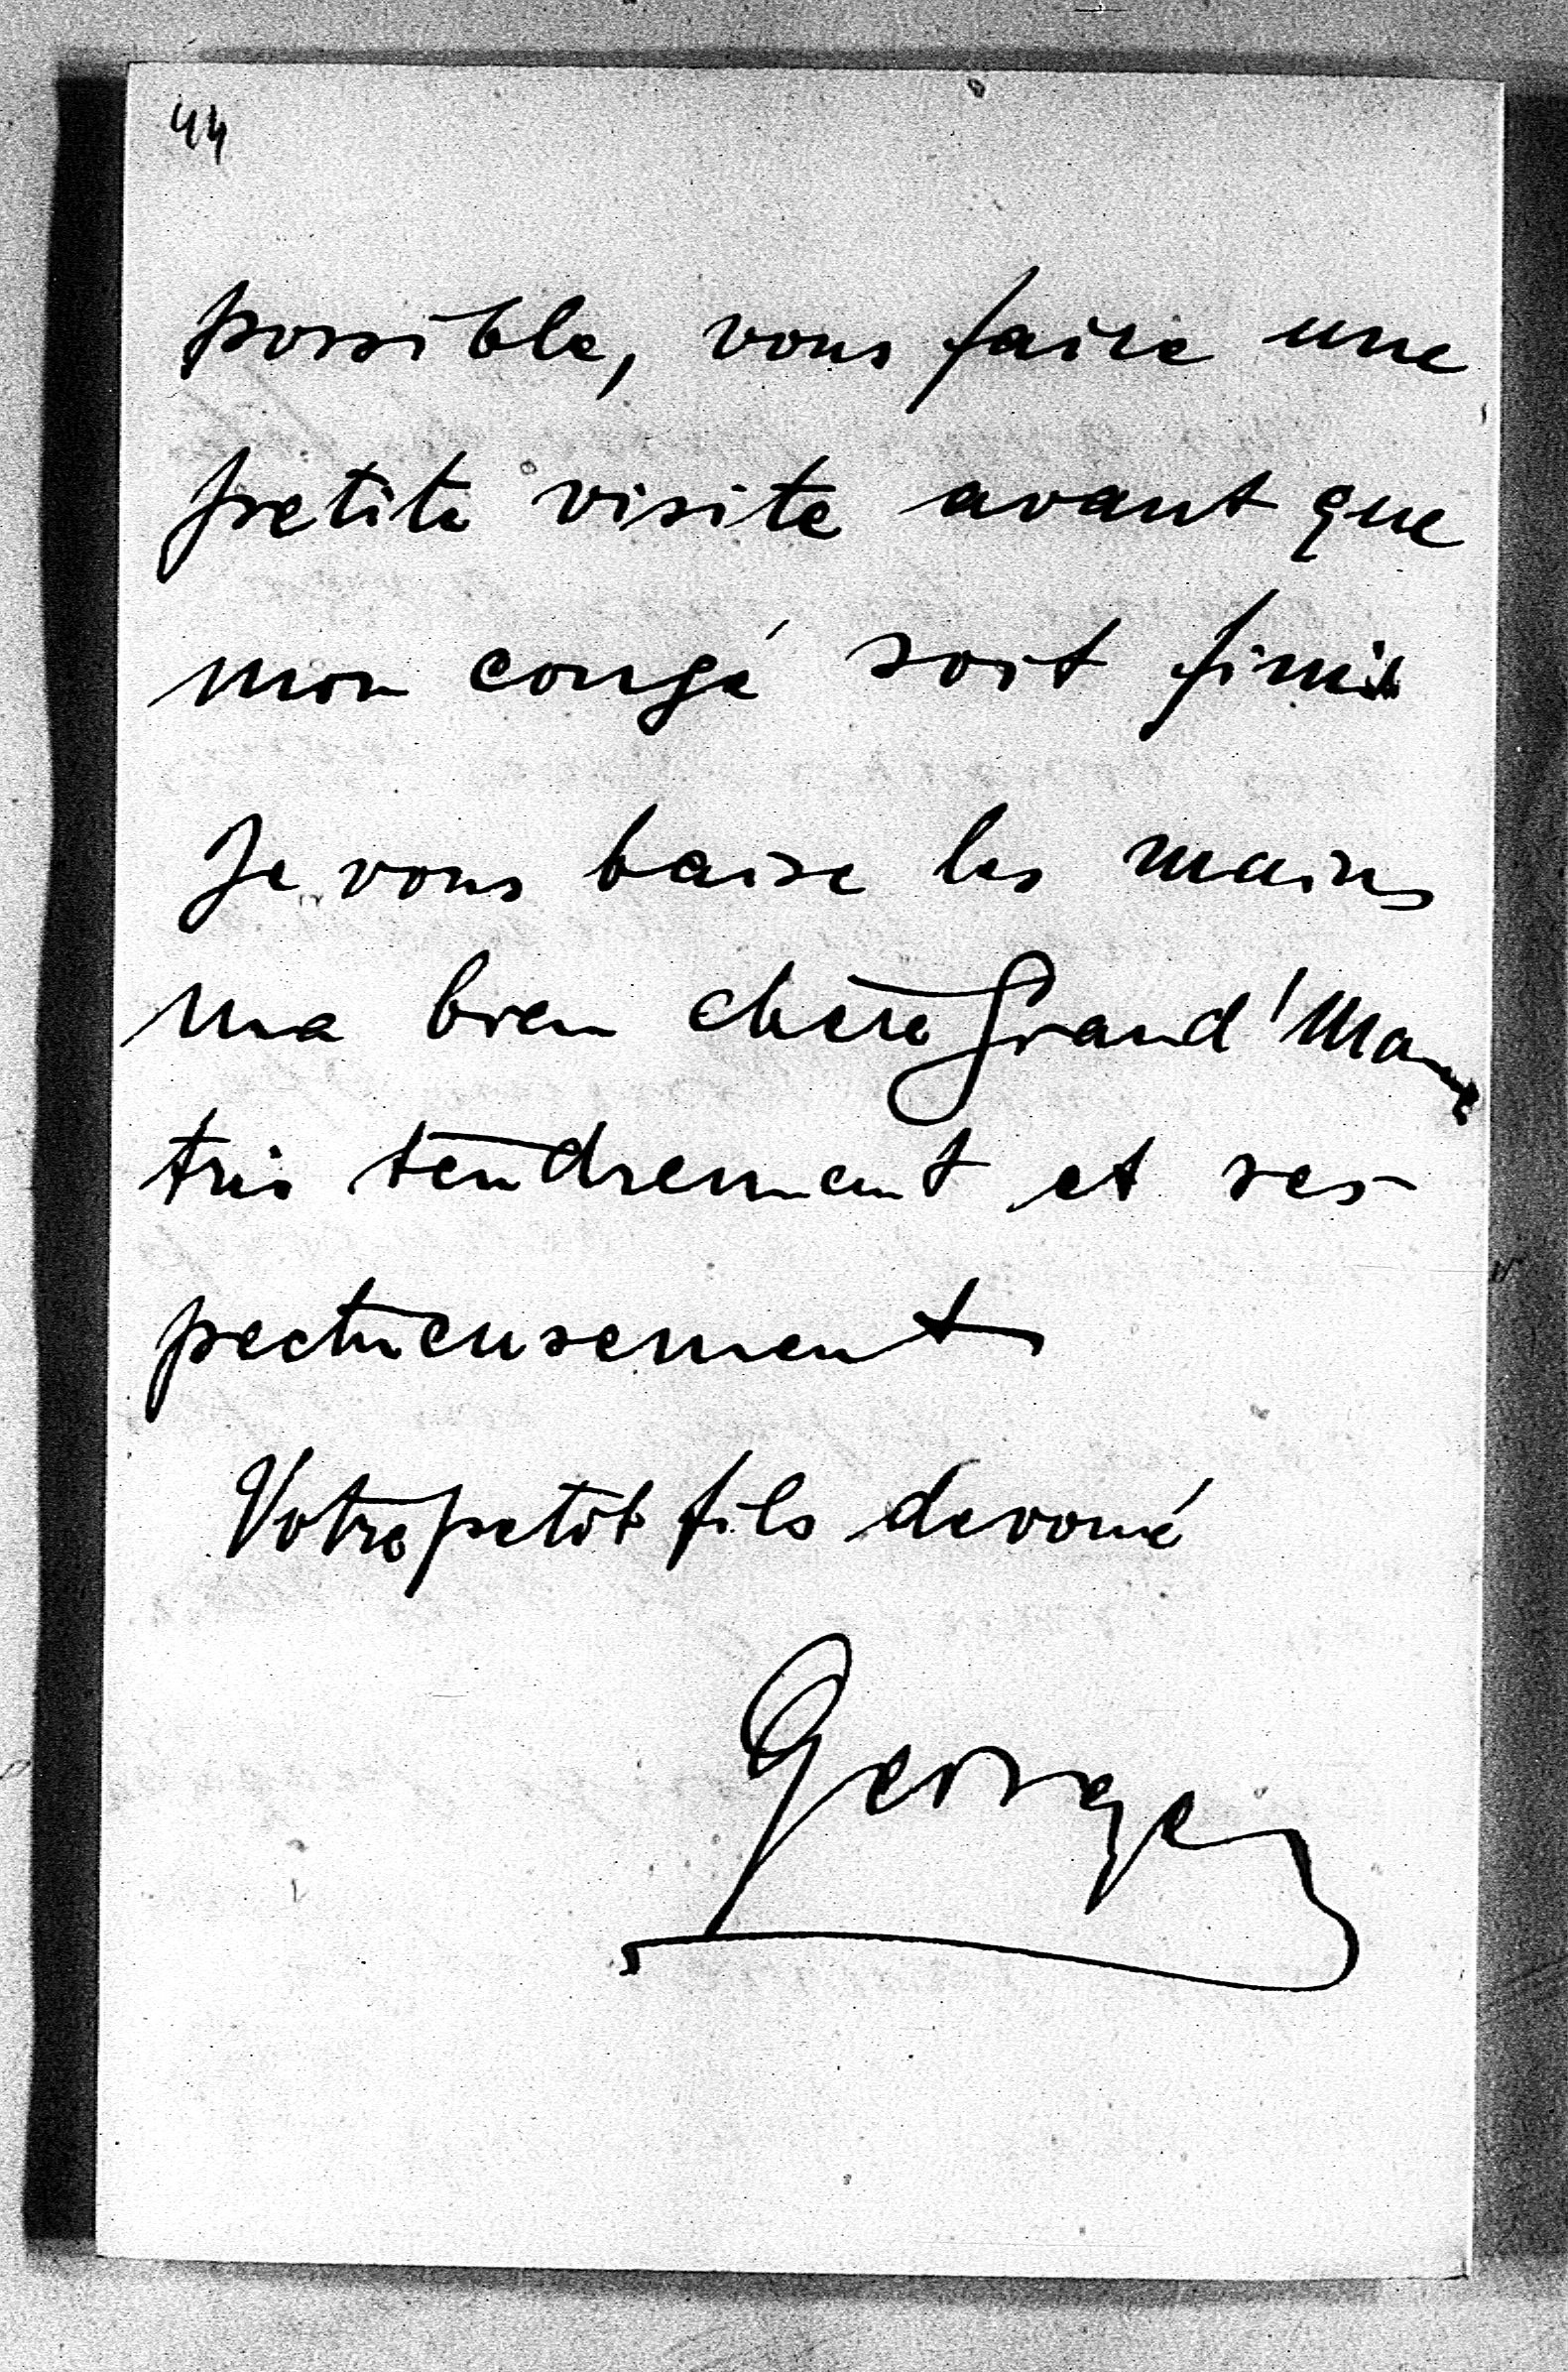 44
possible, vous faire une
petite visite avant que
mon congé soit fini
Je vous baise les mains
ma bien chère Grand'Maman
très tendrement et res-
pectueusement
Votre petit fils devoué
George